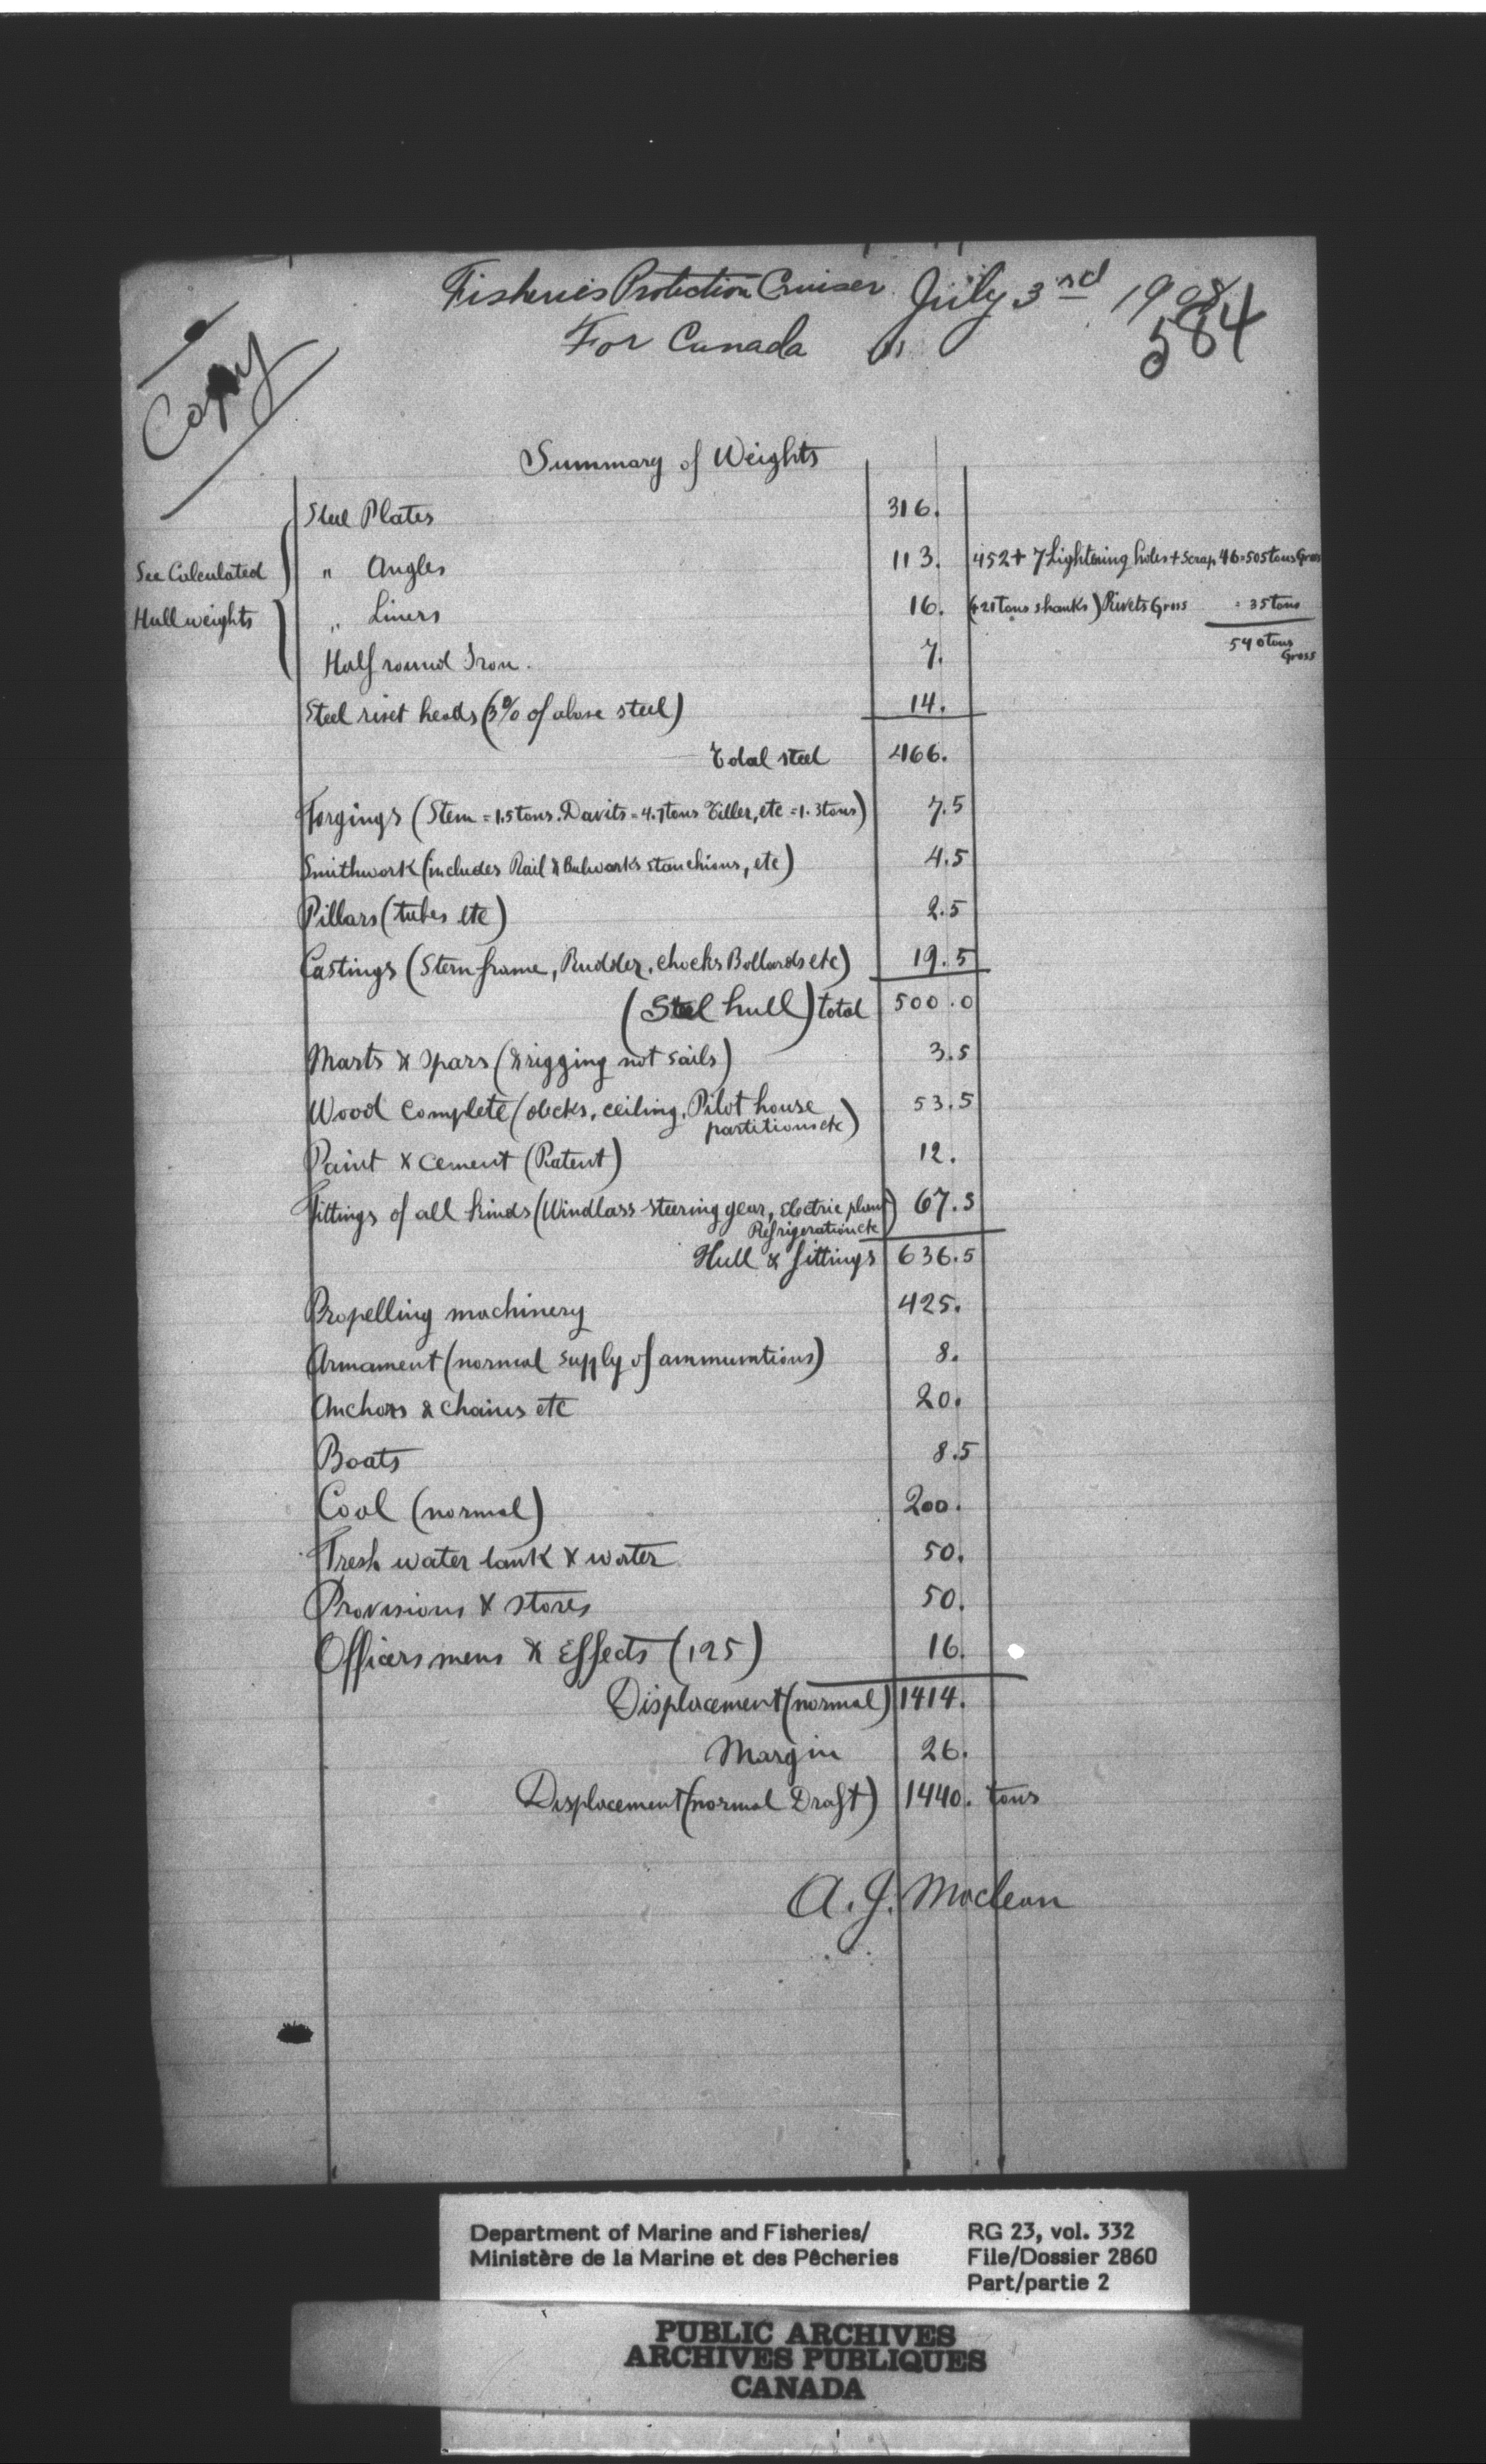 Fisheries Protection Cruiser July 3rd 1908
For Canada
584
Copy
Summary of Weights
Steel Plates 316.
See Calculated " Angles 113. 452 + 7 Lightening holes + Scrap 46 = 505 tons Gross
Hull weights " Liners 16. (+21 Tons shanks) Rivets Gross = 35 tons
540 tons Gross
Half round Iron. 7.
Steel rivet heads (3% of above steel) 14.
Total steel 466.
Forgings (Stem = 1.5 tons. Davits = 4.7 tons Tiller, etc = 1.3 tons) 7.5
Smithwork (includes Rail & Bulwarks stanchions, etc) 4.5
Pillars (tubes etc) 2.5
Castings (Stern frame, Rudder, chocks Bollards etc) 19.5
(Steel hull) total 500.0
Masts & Spars (& rigging not sails) 3.5
Wood complete (decks, ceiling, Pilot house 53.5
partitions etc)
Paint & cement (Patent) 12.
Fittings of all kinds (Windlass steering gear, Electric plant) 67.5
Refrigeration etc
Hull & fittings 636.5
Propelling machinery 425.
Armament (normal supply of ammunitions) 8.
Anchors & chains etc 20.
Boats 8.5
Coal (normal) 200.
Fresh water tank & water 50.
Provisions & stores 50.
Officers mens & Effects (125) 16.
Displacement (normal) 1414.
Margin 26.
Displacement (normal Draft) 1440. tons
A. J. Maclean
Department of Marine and Fisheries/
Ministère de la Marine et des Pêcheries
RG 23, vol. 332
File/Dossier 2860
Part/partie 2
PUBLIC ARCHIVES
ARCHIVES PUBLIQUES
CANADA